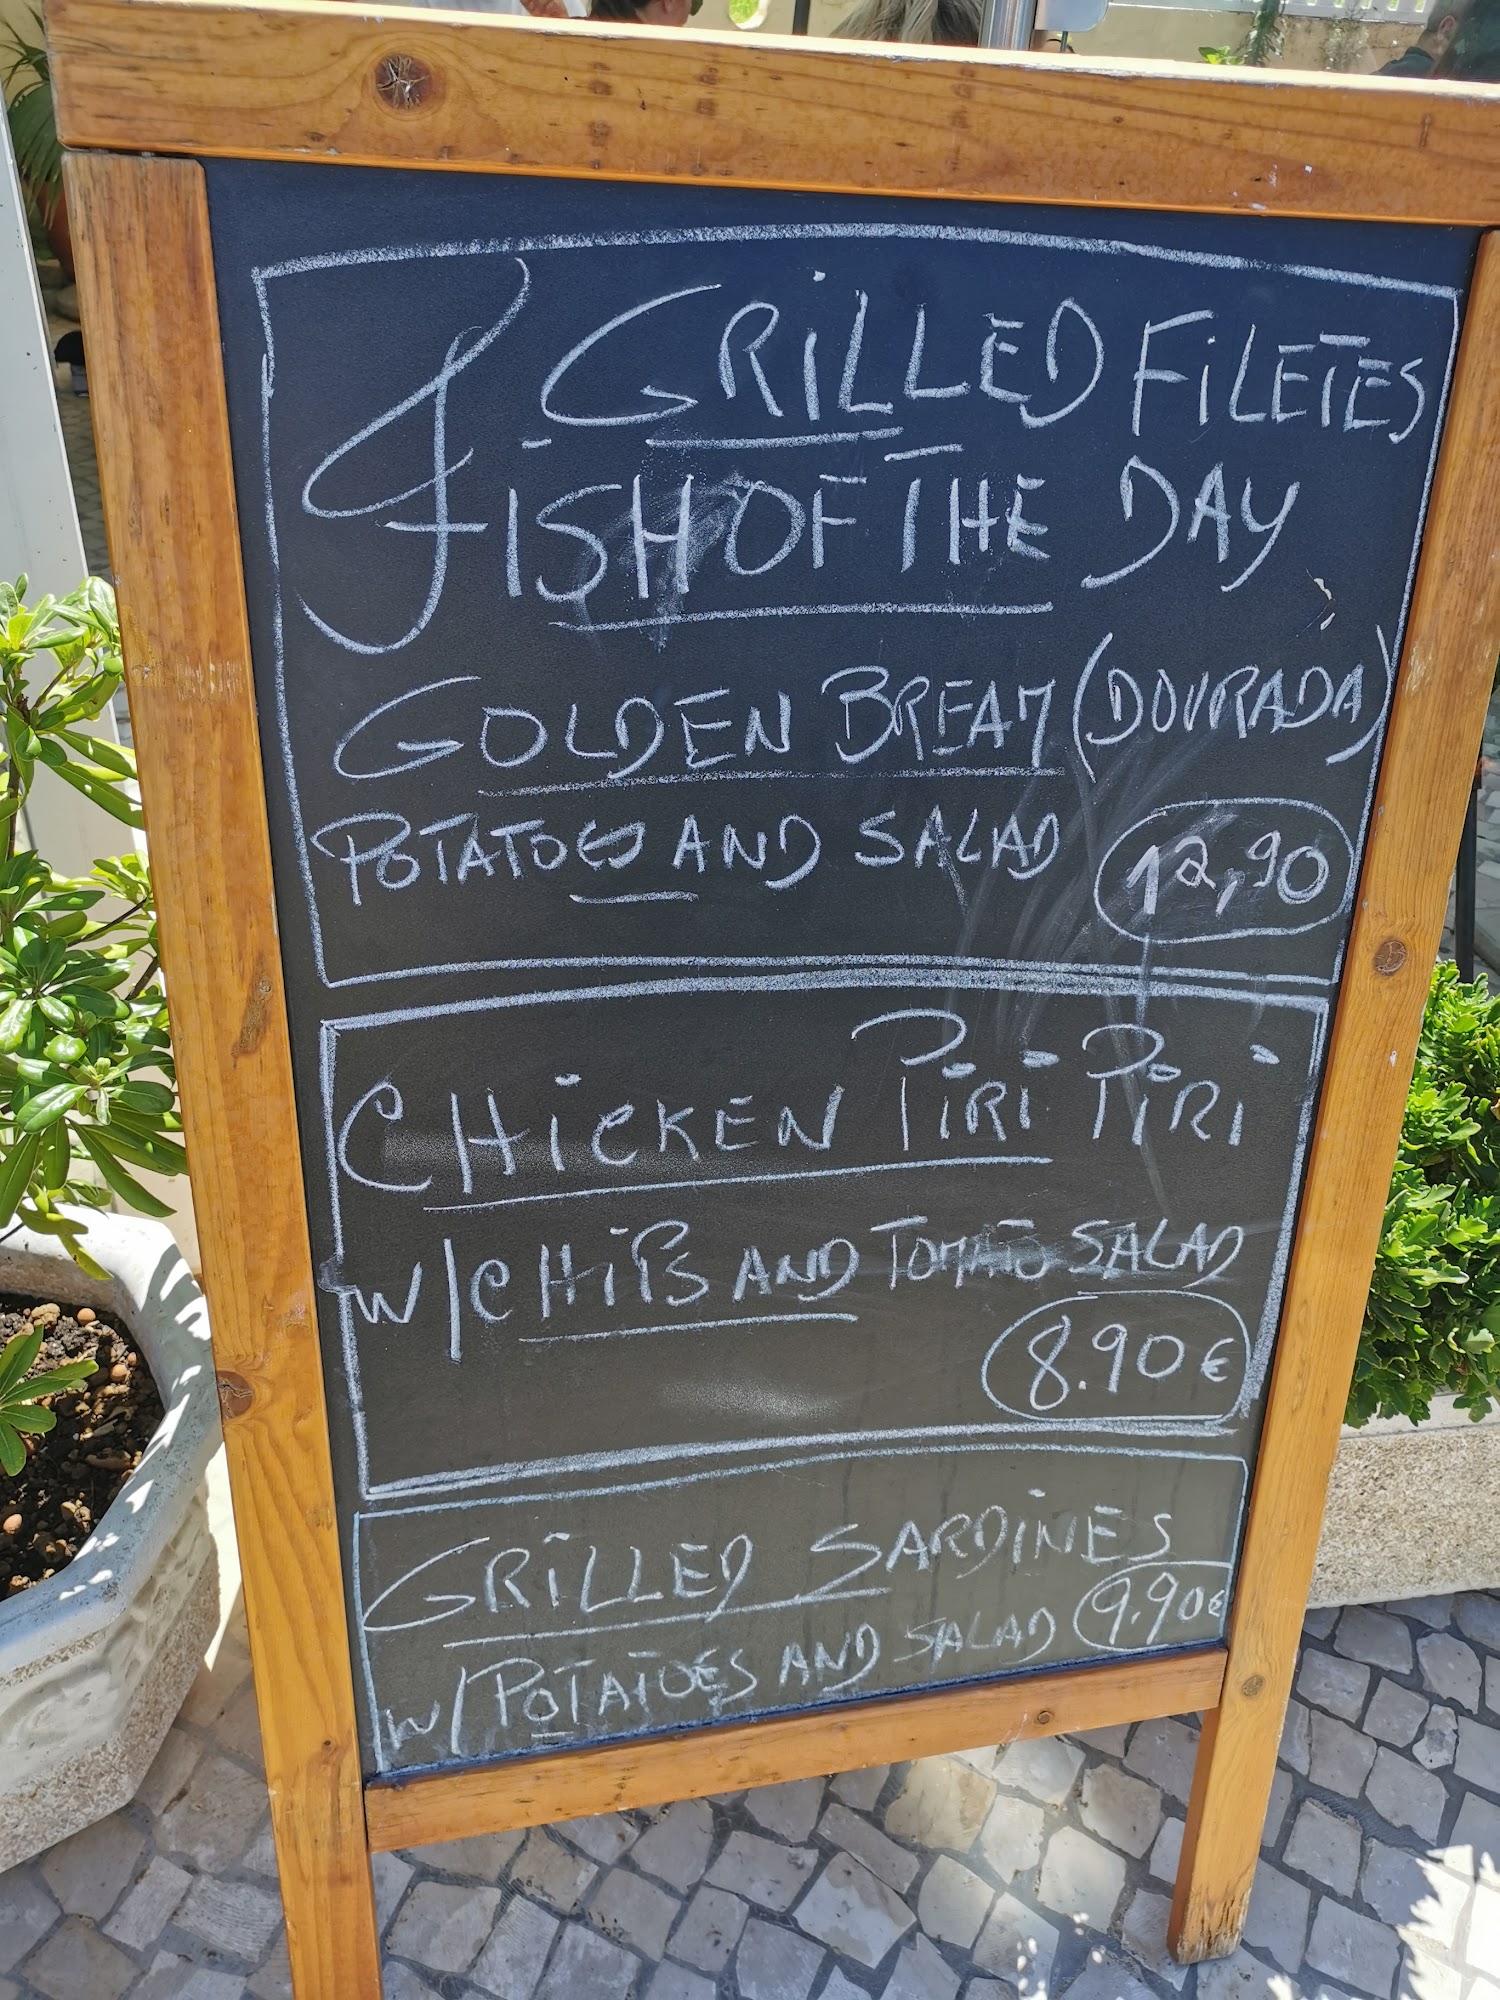 GRiLLED FiLETES
FISH OF THE DAY
GOLDEN BREAM (DOURADA)
POTATOES AND SALAD 12,90
CHiCKEN PiRi PiRi
W/CHiPS AND TOMATO SALAD
8.90€
GRiLLED SARDiNES
W/POTATOES AND SALAD 9.90€